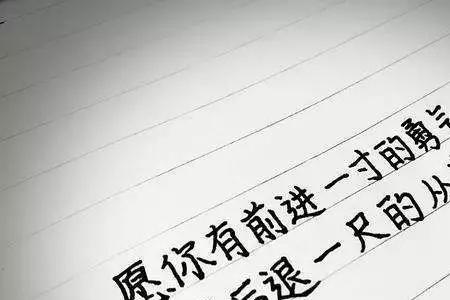 愿你有前进一寸的勇气
后退一尺的从